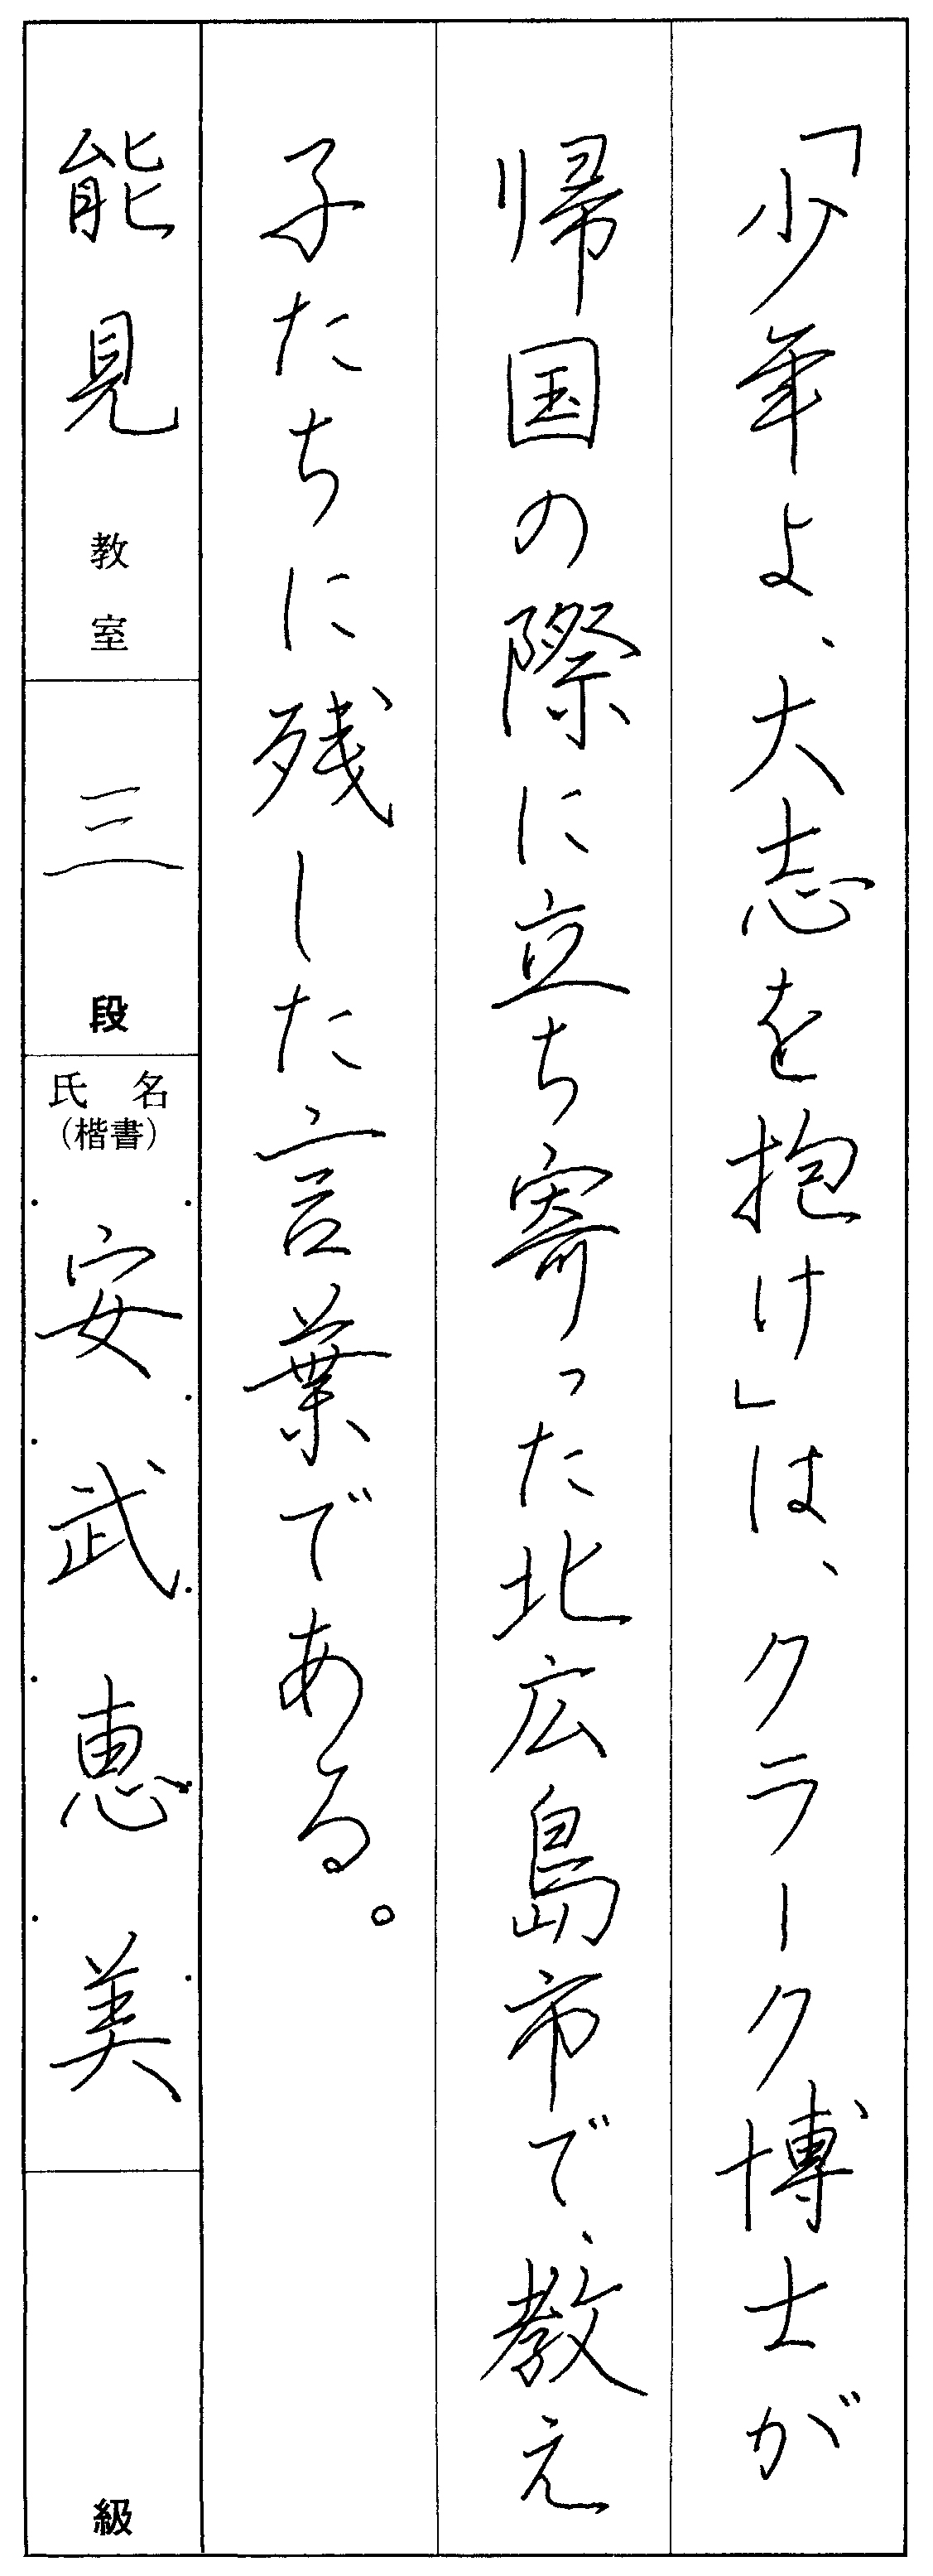 「少年よ、大志を抱け」は、クラーク博士が
帰国の際に立ち寄った北広島市で、教え
子たちに残した言葉である。
能見教室
三段
氏名
(楷書)
安武恵美
級